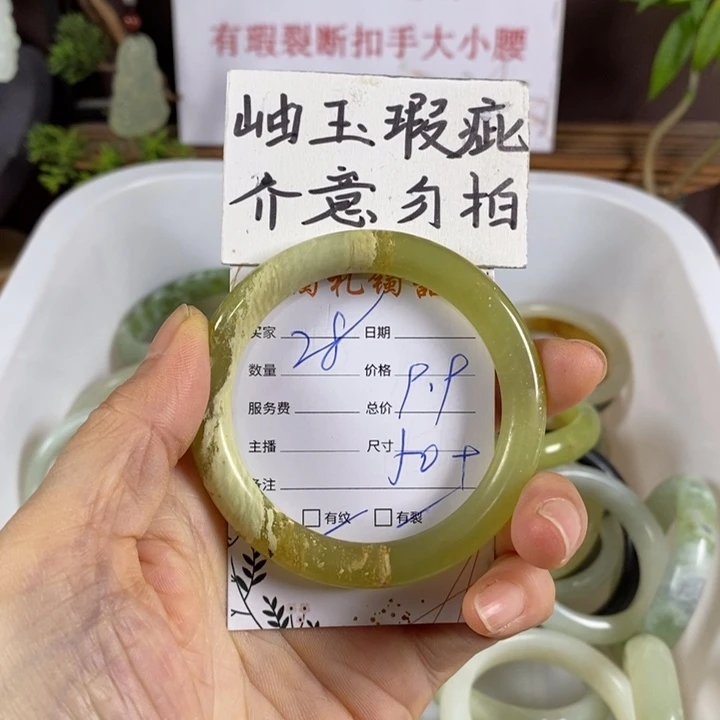 有瑕裂断扣手大小腰
岫玉瑕疵
介意勿拍
买家 28 日期
数量 价格 9.9
服务费 总价
主播 尺寸 50+
备注
有纹 有裂